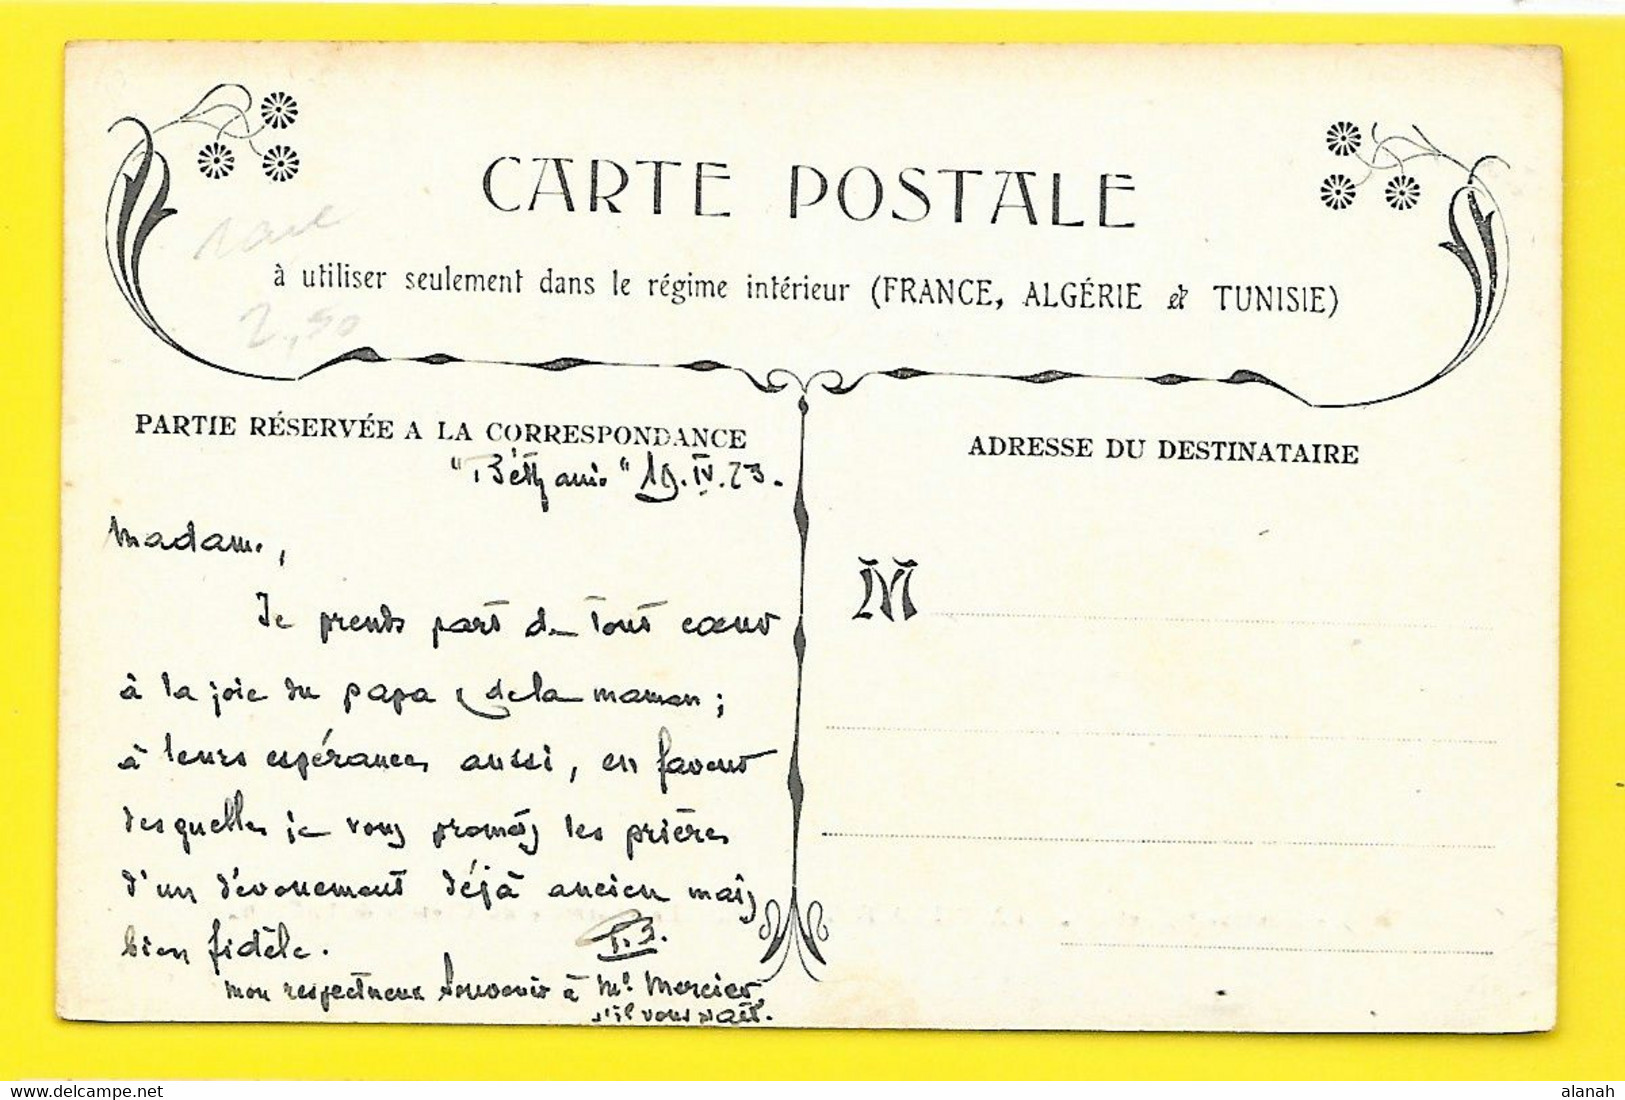 CARTE POSTALE
à utiliser seulement dans le régime intérieur (FRANCE, ALGÉRIE et TUNISIE)
rare
2,50
PARTIE RÉSERVÉE A LA CORRESPONDANCE
ADRESSE DU DESTINATAIRE
"Béthanie" 19.IV.23.
Madame,
Je prends part de tout cœur
à la joie du papa & de la maman ;
à leurs espérances aussi, en faveur
desquelles je vous promets les prières
d'un dévouement déjà ancien mais
bien fidèle.
mon respectueux souvenir à Mr Mercier,
s'il vous plaît.
M
alanah